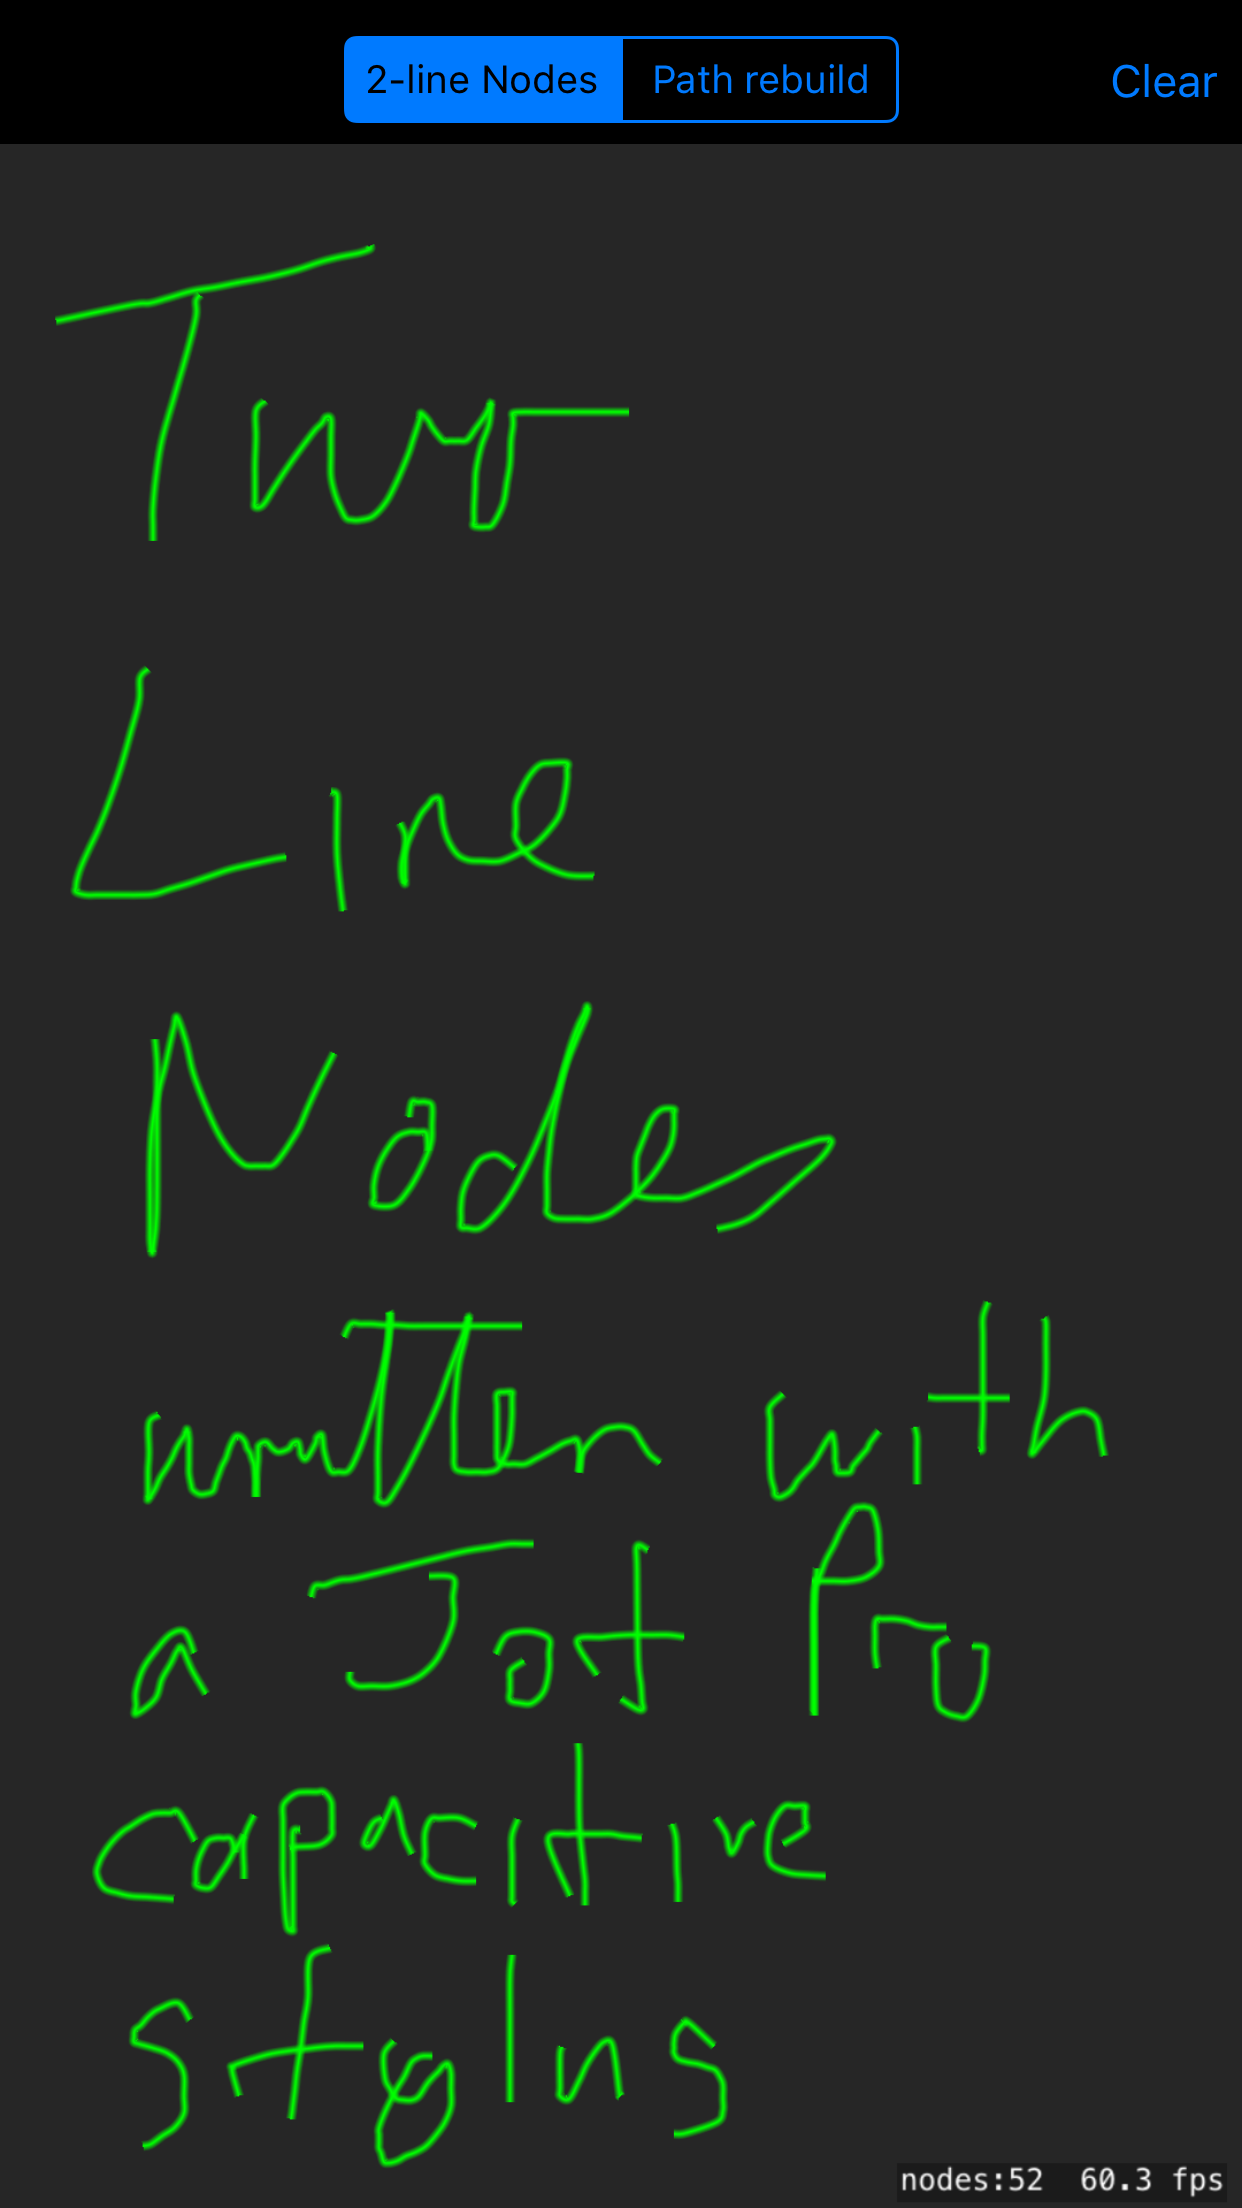 2-line Nodes Path rebuild Clear
Two
Line
Nodes
written with
a Jot Pro
capacitive
stylus
nodes:52 60.3 fps